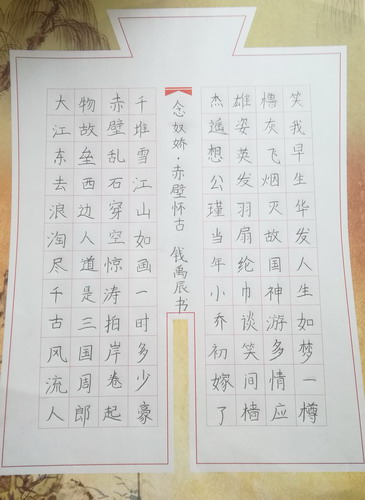 大江东去浪淘尽千古风流人
物故垒西边人道是三国周郎
赤壁乱石穿空惊涛拍岸卷起
千堆雪江山如画一时多少豪
念奴娇·赤壁怀古 钱禹辰书
杰遥想公瑾当年小乔初嫁了
雄姿英发羽扇纶巾谈笑间樯
橹灰飞烟灭故国神游多情应
笑我早生华发人生如梦一樽